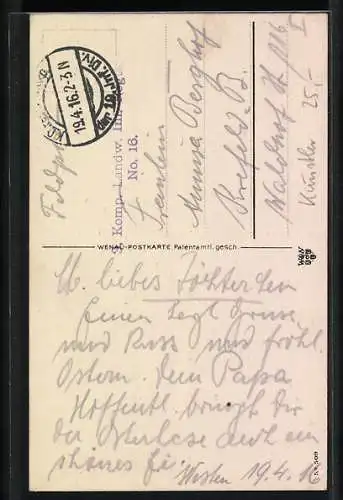 Feldpost
19.4.16.2-3 N
der 18. Inf. Div.
Komp. Landw. Inf. Reg.
No. 16.
Fräulein
Berghof
Krefeld-B.
116
I
Künstler 25,-
WENAU-POSTKARTE Patentamtl. gesch.
M. liebes Töchterchen
Einen Gruss
und Kuss und fröhl.
Ostern. Dein Papa
Hoffentl. bringt Dir
der Osterhase auch ein
schönes Ei.
Westen 19.4.16